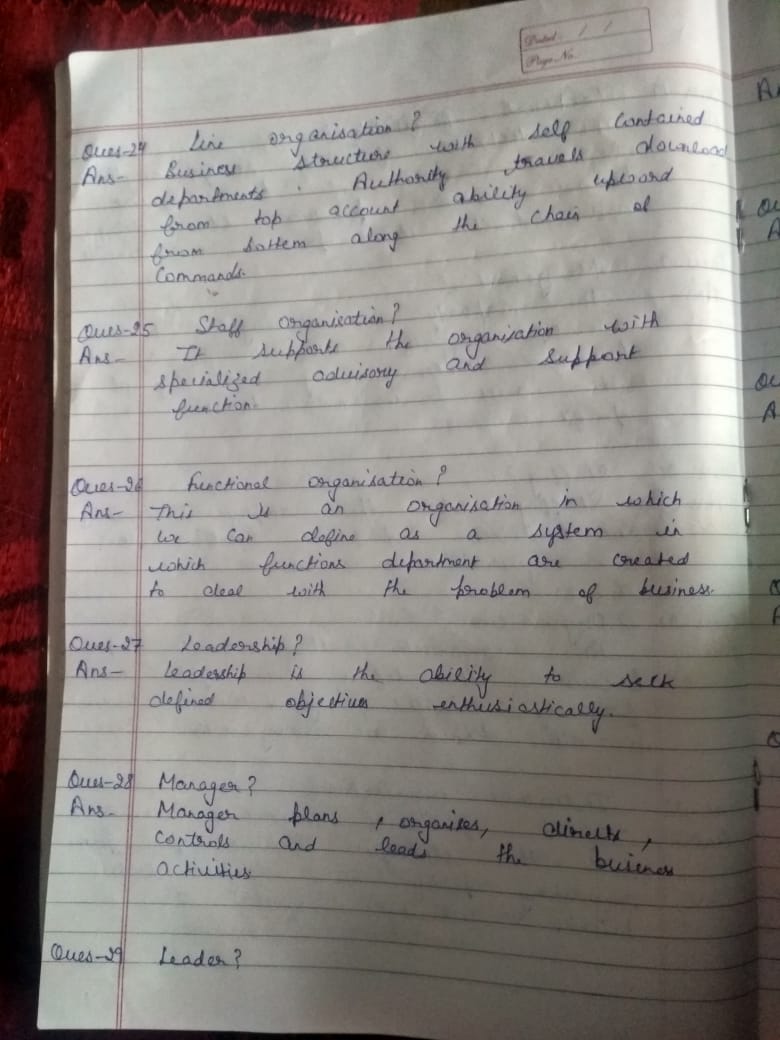 Dated / /
Page No.
Ques-24 Line organisation?
Ans- Business structure with self contained
departments. Authority travels download
from top account ability upword
from bottem along the chain of
Commands.
Ques-25 Staff organisation?
Ans- It supports the organisation with
specialized advisory and support
function.
Ques-26 functional organisation?
Ans- This is an organisation in which
we can define as a system in
which functions department are created
to deal with the problem of business.
Ques-27 Leadership?
Ans- Leadership is the ability to seek
defined objectives enthusiastically.
Ques-28 Manager?
Ans- Manager plans, organises, directs,
controls and leads the business
activities
Ques-29 Leader?